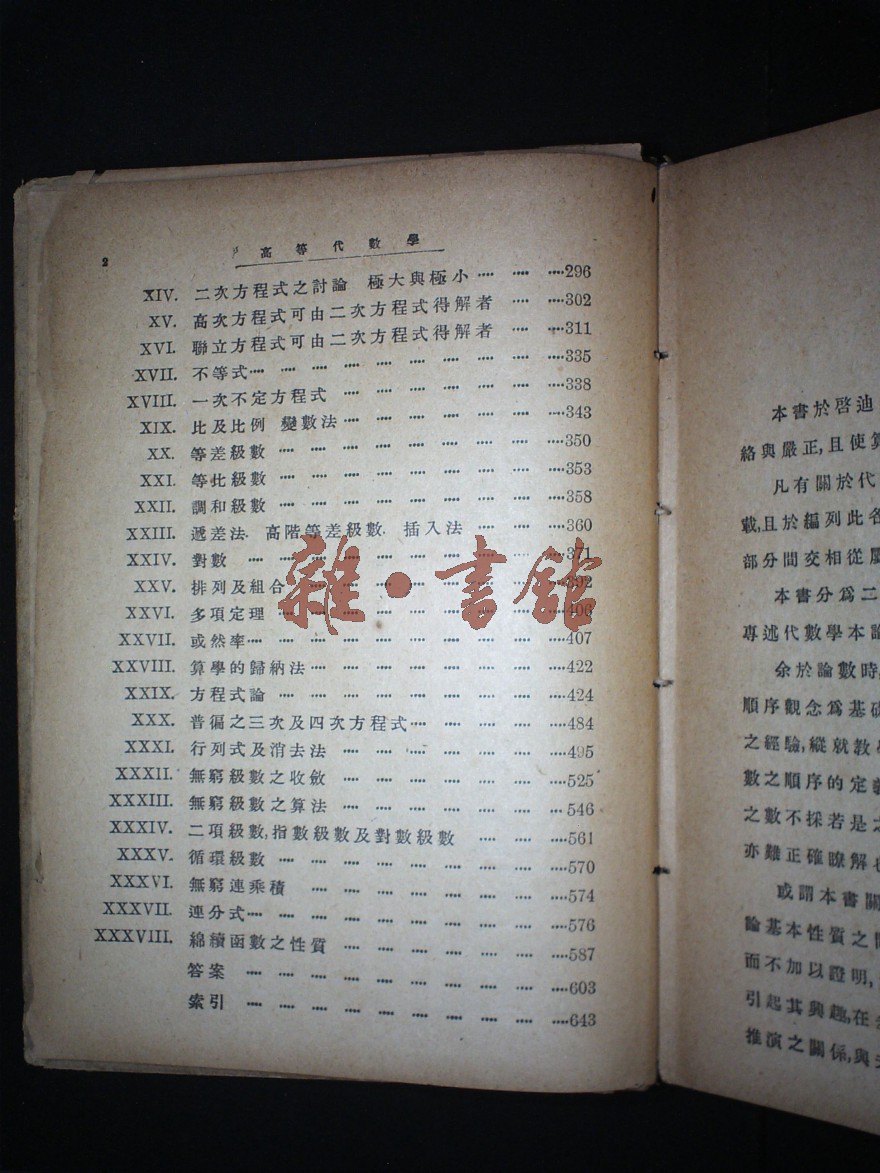 2
高等代數學
XIV. 二次方程式之討論 極大與極小 ···· ···· ····296
XV. 高次方程式可由二次方程式得解者 ···· ····302
XVI. 聯立方程式可由二次方程式得解者 ···· ····311
XVII. 不等式···· ···· ···· ···· ···· ···· ···· ···· ····335
XVIII. 一次不定方程式 ···· ···· ···· ···· ···· ····338
XIX. 比及比例 變數法···· ···· ···· ···· ···· ····343
XX. 等差級數 ···· ···· ···· ···· ···· ···· ···· ····350
XXI. 等比級數 ···· ···· ···· ···· ···· ···· ···· ····353
XXII. 調和級數 ···· ···· ···· ···· ···· ···· ···· ····358
XXIII. 遞差法 高階等差級數 插入法 ···· ···· ····360
XXIV. 對數 ···· ···· ···· ···· ···· ···· ···· ···· ····371
XXV. 排列及組合 ···· ···· ···· ···· ···· ···· ····392
XXVI. 多項定理 ···· ···· ···· ···· ···· ···· ···· ····406
XXVII. 或然率···· ···· ···· ···· ···· ···· ···· ···· ····407
XXVIII. 算學的歸納法···· ···· ···· ···· ···· ···· ····422
XXIX. 方程式論 ···· ···· ···· ···· ···· ···· ···· ····424
XXX. 普徧之三次及四次方程式···· ···· ···· ····484
XXXI. 行列式及消去法 ···· ···· ···· ···· ···· ····495
XXXII. 無窮級數之收斂 ···· ···· ···· ···· ···· ····525
XXXIII. 無窮級數之算法 ···· ···· ···· ···· ···· ····546
XXXIV. 二項級數,指數級數及對數級數 ···· ···· ····561
XXXV. 循環級數 ···· ···· ···· ···· ···· ···· ···· ····570
XXXVI. 無窮連乘積 ···· ···· ···· ···· ···· ···· ····574
XXXVII. 連分式···· ···· ···· ···· ···· ···· ···· ···· ····576
XXXVIII. 綿續函數之性質 ···· ···· ···· ···· ···· ····587
答案 ···· ···· ···· ···· ···· ···· ···· ···· ····603
索引 ···· ···· ···· ···· ···· ···· ···· ···· ····643
雜·書館
本書於啓迪
絡與嚴正,且使算
凡有關於代
載,且於編列此各
部分間交相從屬
本書分爲二
專述代數學本論
余於論數時,
順序觀念爲基礎
之經驗,縱就教學
數之順序的定義
之數不採若是之
亦難正確瞭解也
或謂本書關
論基本性質之
而不加以證明,
引起其興趣,在
推演之關係,與